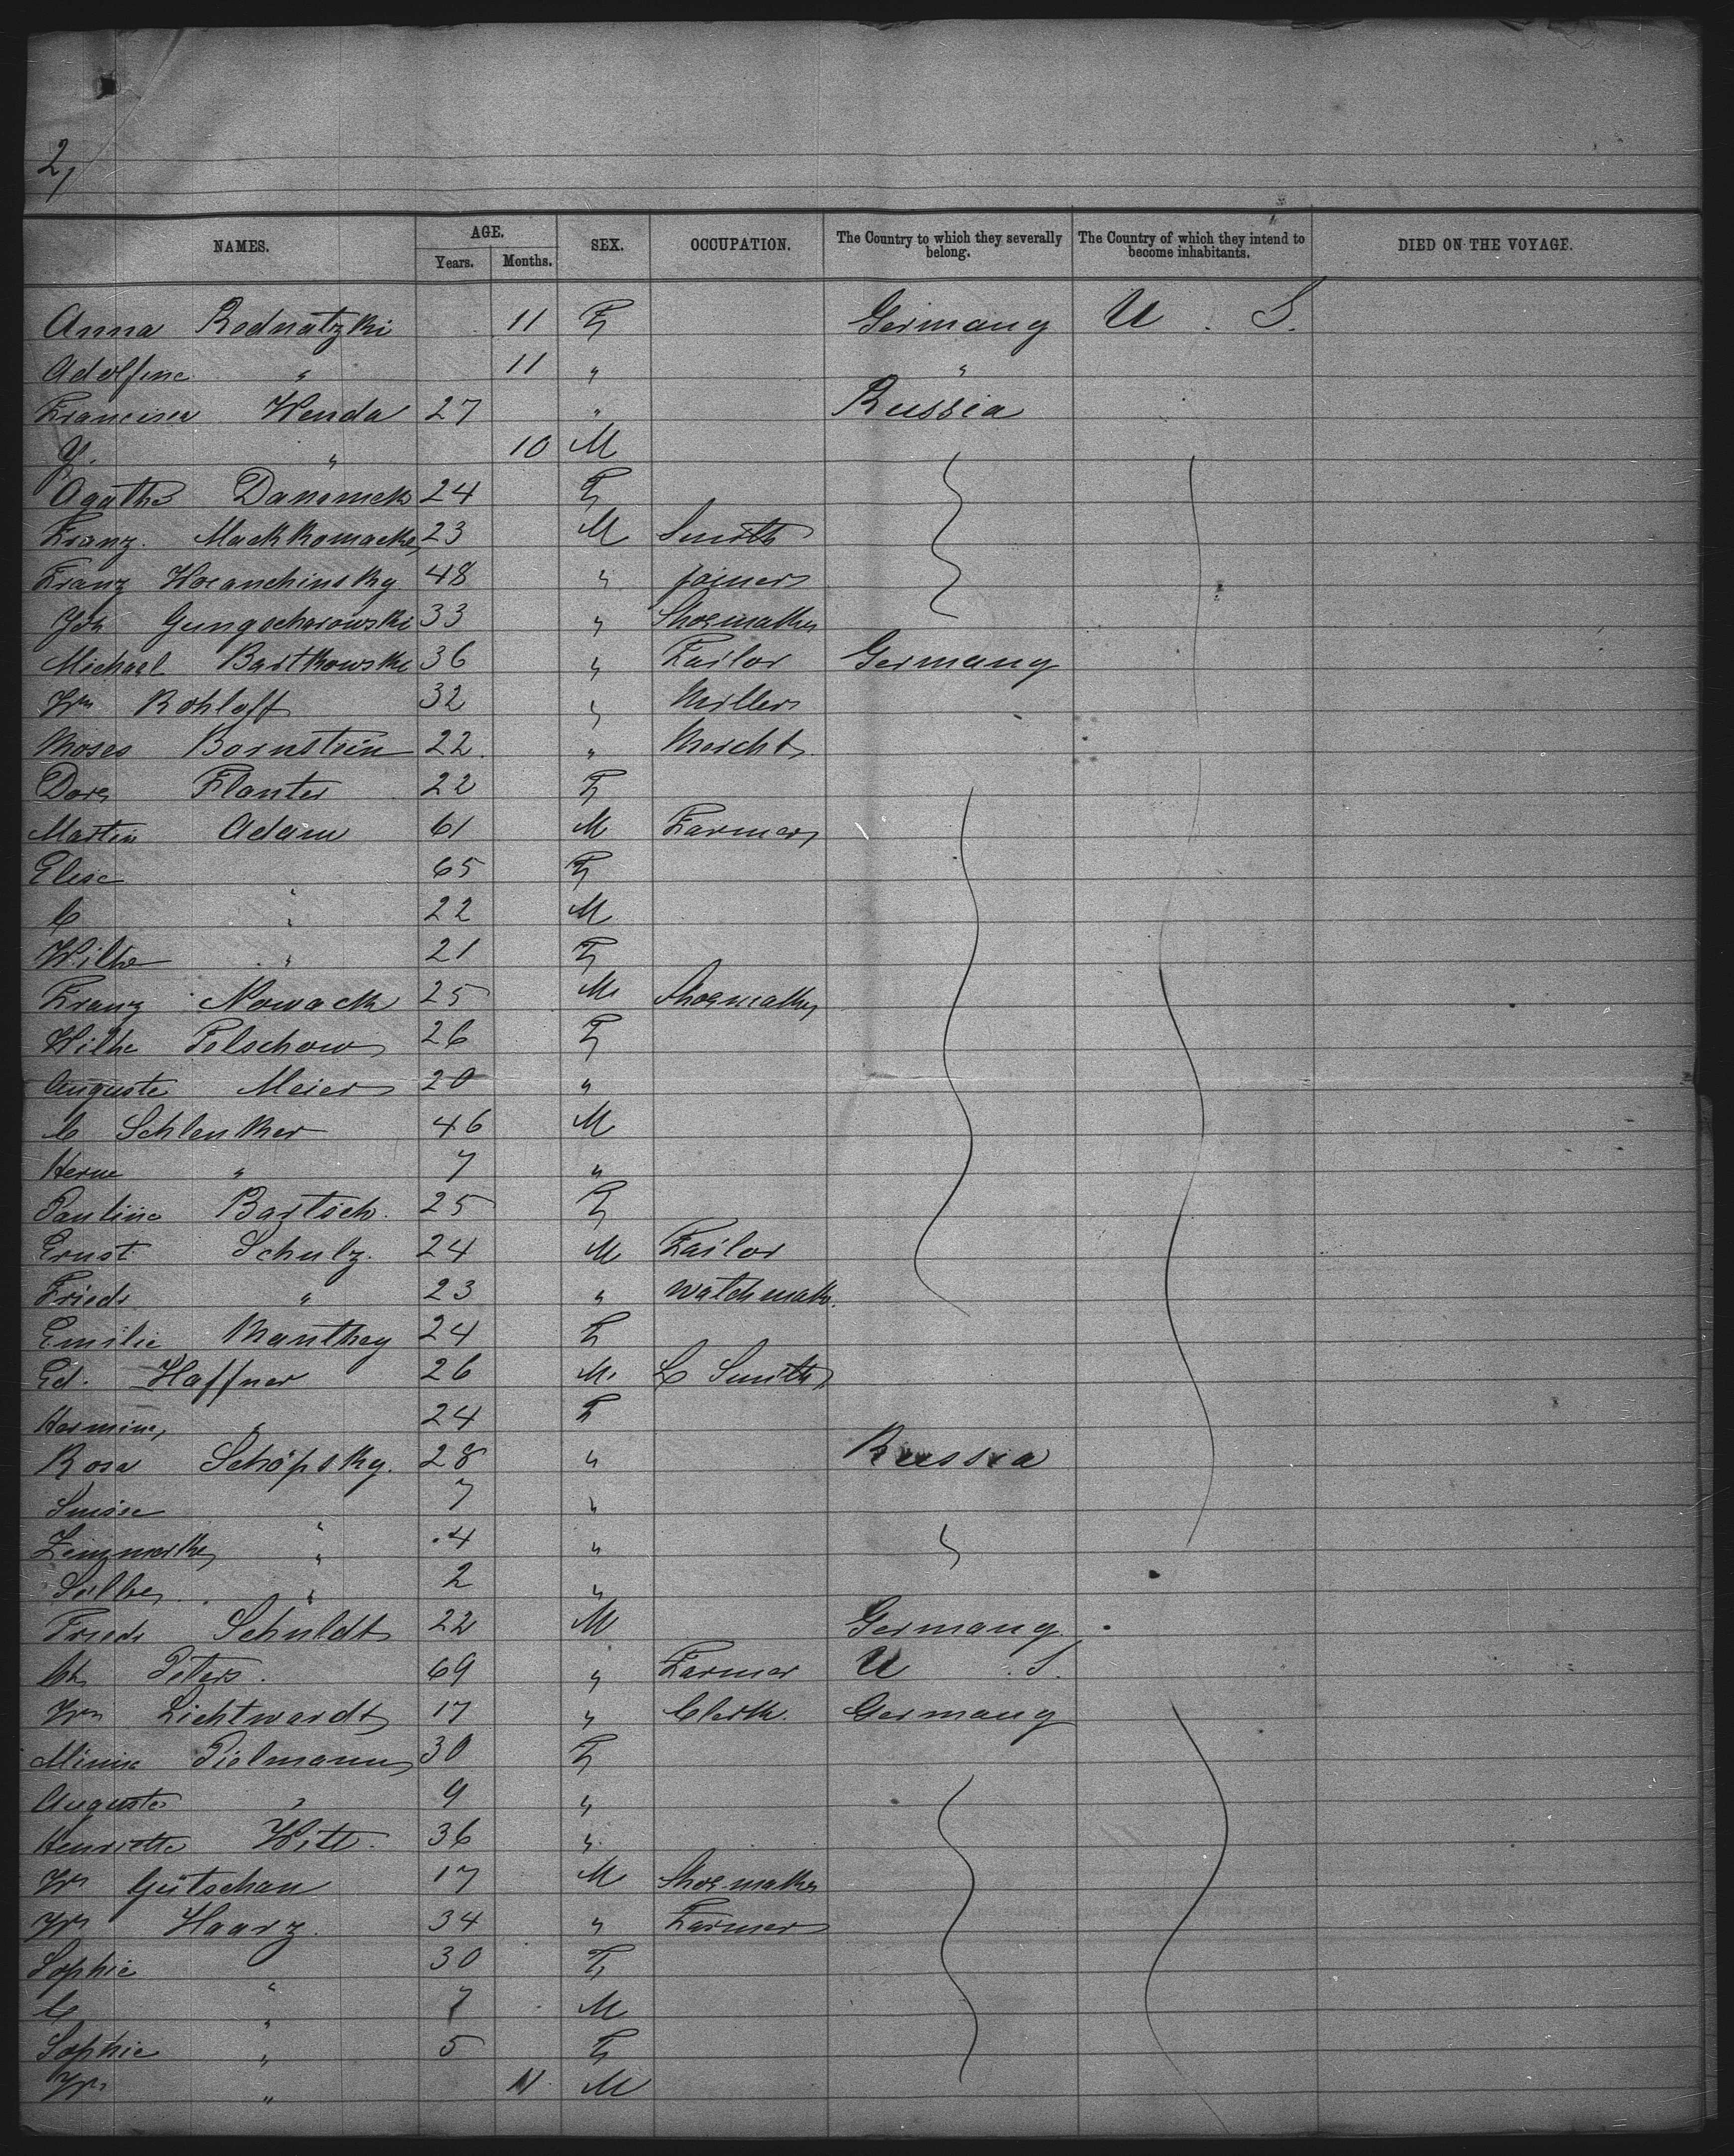 2,
NAMES. AGE. SEX. OCCUPATION. The Country to which they severally belong. The Country of which they intend to become inhabitants. DIED ON THE VOYAGE.
Years. Months.
Anna Rodnatzki 11 F Germany U. S.
Adolfine " 11 " "
Francisca Wenda 27 " Russia
Y. " 10 M
Agathe 24 F
Franz 23 M Smith
Franz 48 " joiner
Joh 33 " Shoemaker
Michael Bartkowski 36 " Tailor Germany
Wm Rohloff 32 " Miller
Moses Bornstein 22 " Mercht
Dora Flanter 22 F
Martin Adam 61 M Farmer
Elise " 65 F
C " 22 M
Wilhe " 21 F
Franz Nowack 25 M Shoemaker
Wilhe Polschow 26 F
Auguste Meier 20 "
C Schlenker 46 M
Herm " 7 "
Pauline Bartsch. 25 F
Ernst Schulz. 24 M Tailor
Friedr " 23 " Watchmak.
Emilie Manthey 24 F
Ed. Haffner 26 M. Smith
Hermine " 24 F
Rosa Schöpsky. 28 " Russia
" 7 "
" 4 " "
" 2 "
Friedr Schuldt 22 M Germany
Ch Peters. 69 " Farmer U. S.
Wm Lichtwardt 17 " Clerk. Germany
Minna Pielmann 30 F
Auguste " 9 "
Henriette Witt. 36 "
Wm Gütschau 17 M Shoemaker
Wm Haarz. 34 " Farmer
Sophie " 30 F
C " 7 M
Sophie " 5 F
Wm " 11 M